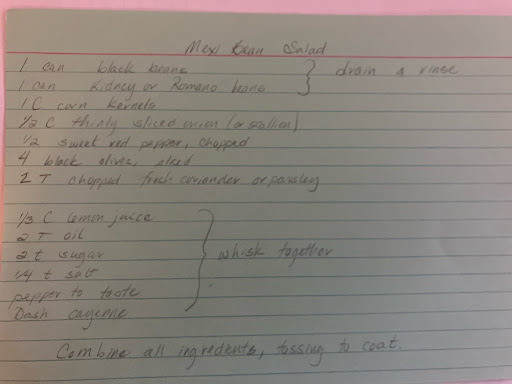 Mexi Bean Salad
1 can black beans } drain & rinse
1 can kidney or Romano beans
1 C corn kernels
1/2 C thinly sliced onion (or scallion)
1/2 sweet red pepper, chopped
4 black olives, sliced
2 T chopped fresh coriander or parsley
1/3 C lemon juice
2 T oil
2 t sugar } whisk together
1/4 t salt
pepper to taste
Dash cayenne
Combine all ingredients, tossing to coat.